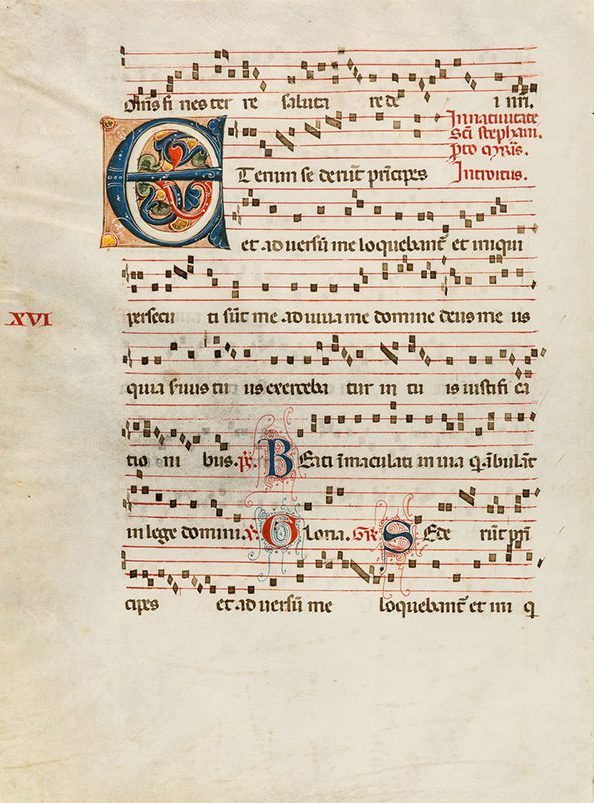 omnes fines ter re saluta re de i nri.
In natiuitate
Sci stephani.
pro mris.
Introitus.
ETenim se derūt prīcipes
et aduersū me loquebant̄ et iniqui
XVI
persecu ti sūt me adiuua me domine deus me us
quia seruus tu us exerceba tur in tu is iustifi ca
tio ni bus. ps. BEati īmaculati in uia q̄ ābulāt
in lege domini. v̄. Gloria. Gr̄. SEde rūt prī
cipes et aduersū me loquebant̄ et ini q